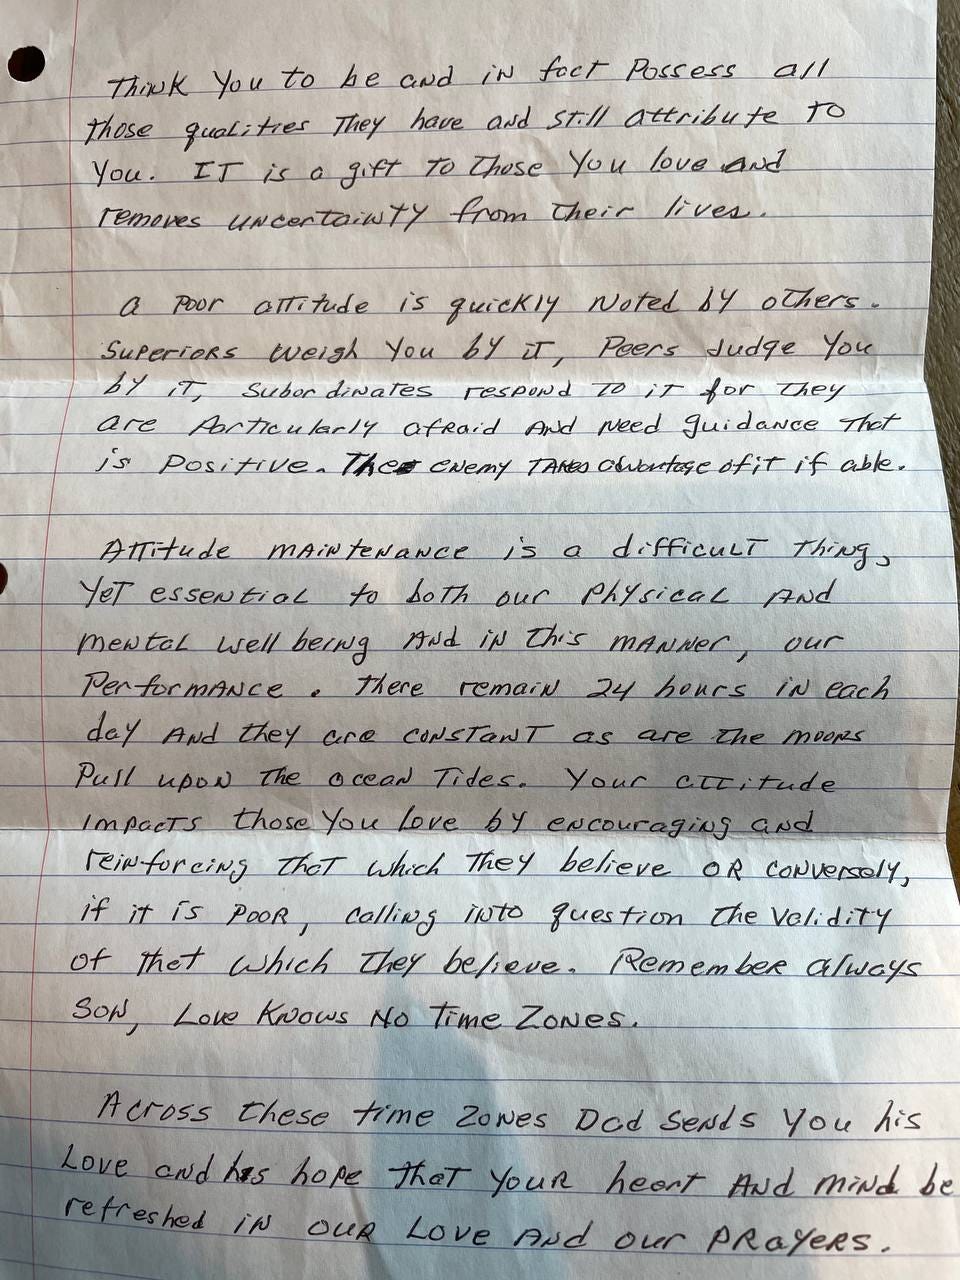 Think You to be and in fact Possess all
those qualities They have and still attribute To
You. IT is a gift To Those You love and
removes uncertainty from Their lives.
A Poor attitude is quickly Noted by others.
Superiors weigh You by it, Peers Judge You
by it, Subordinates respond To it for They
are Particularly afraid And Need guidance That
is Positive. The enemy Takes advantage of it if able.
Attitude maintenance is a difficult Thing,
Yet essential to both our Physical And
mental well being And in This manner, our
Performance. There remain 24 hours in each
day And they are constant as are The moons
Pull upon The ocean Tides. Your attitude
impacts those You love by encouraging and
reinforcing That which They believe or conversely,
if it is Poor, calling into question The Validity
of that which They believe. Remember always
Son, Love Knows No Time Zones.
Across these time Zones Dad Sends You his
Love and his hope That Your heart And mind be
refreshed in our Love And our Prayers.